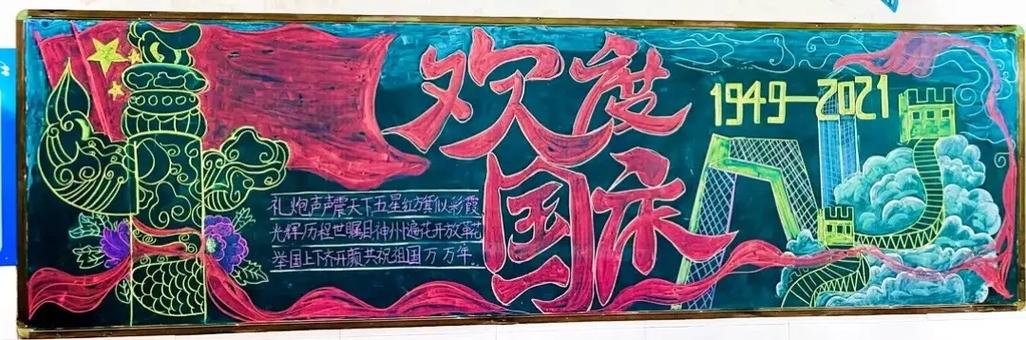 欢度
国庆
1949—2021
礼炮声声震天下五星红旗似彩霞
光辉历程世瞩目神州遍花开放军花
举国上下齐开颜共祝祖国万万年.